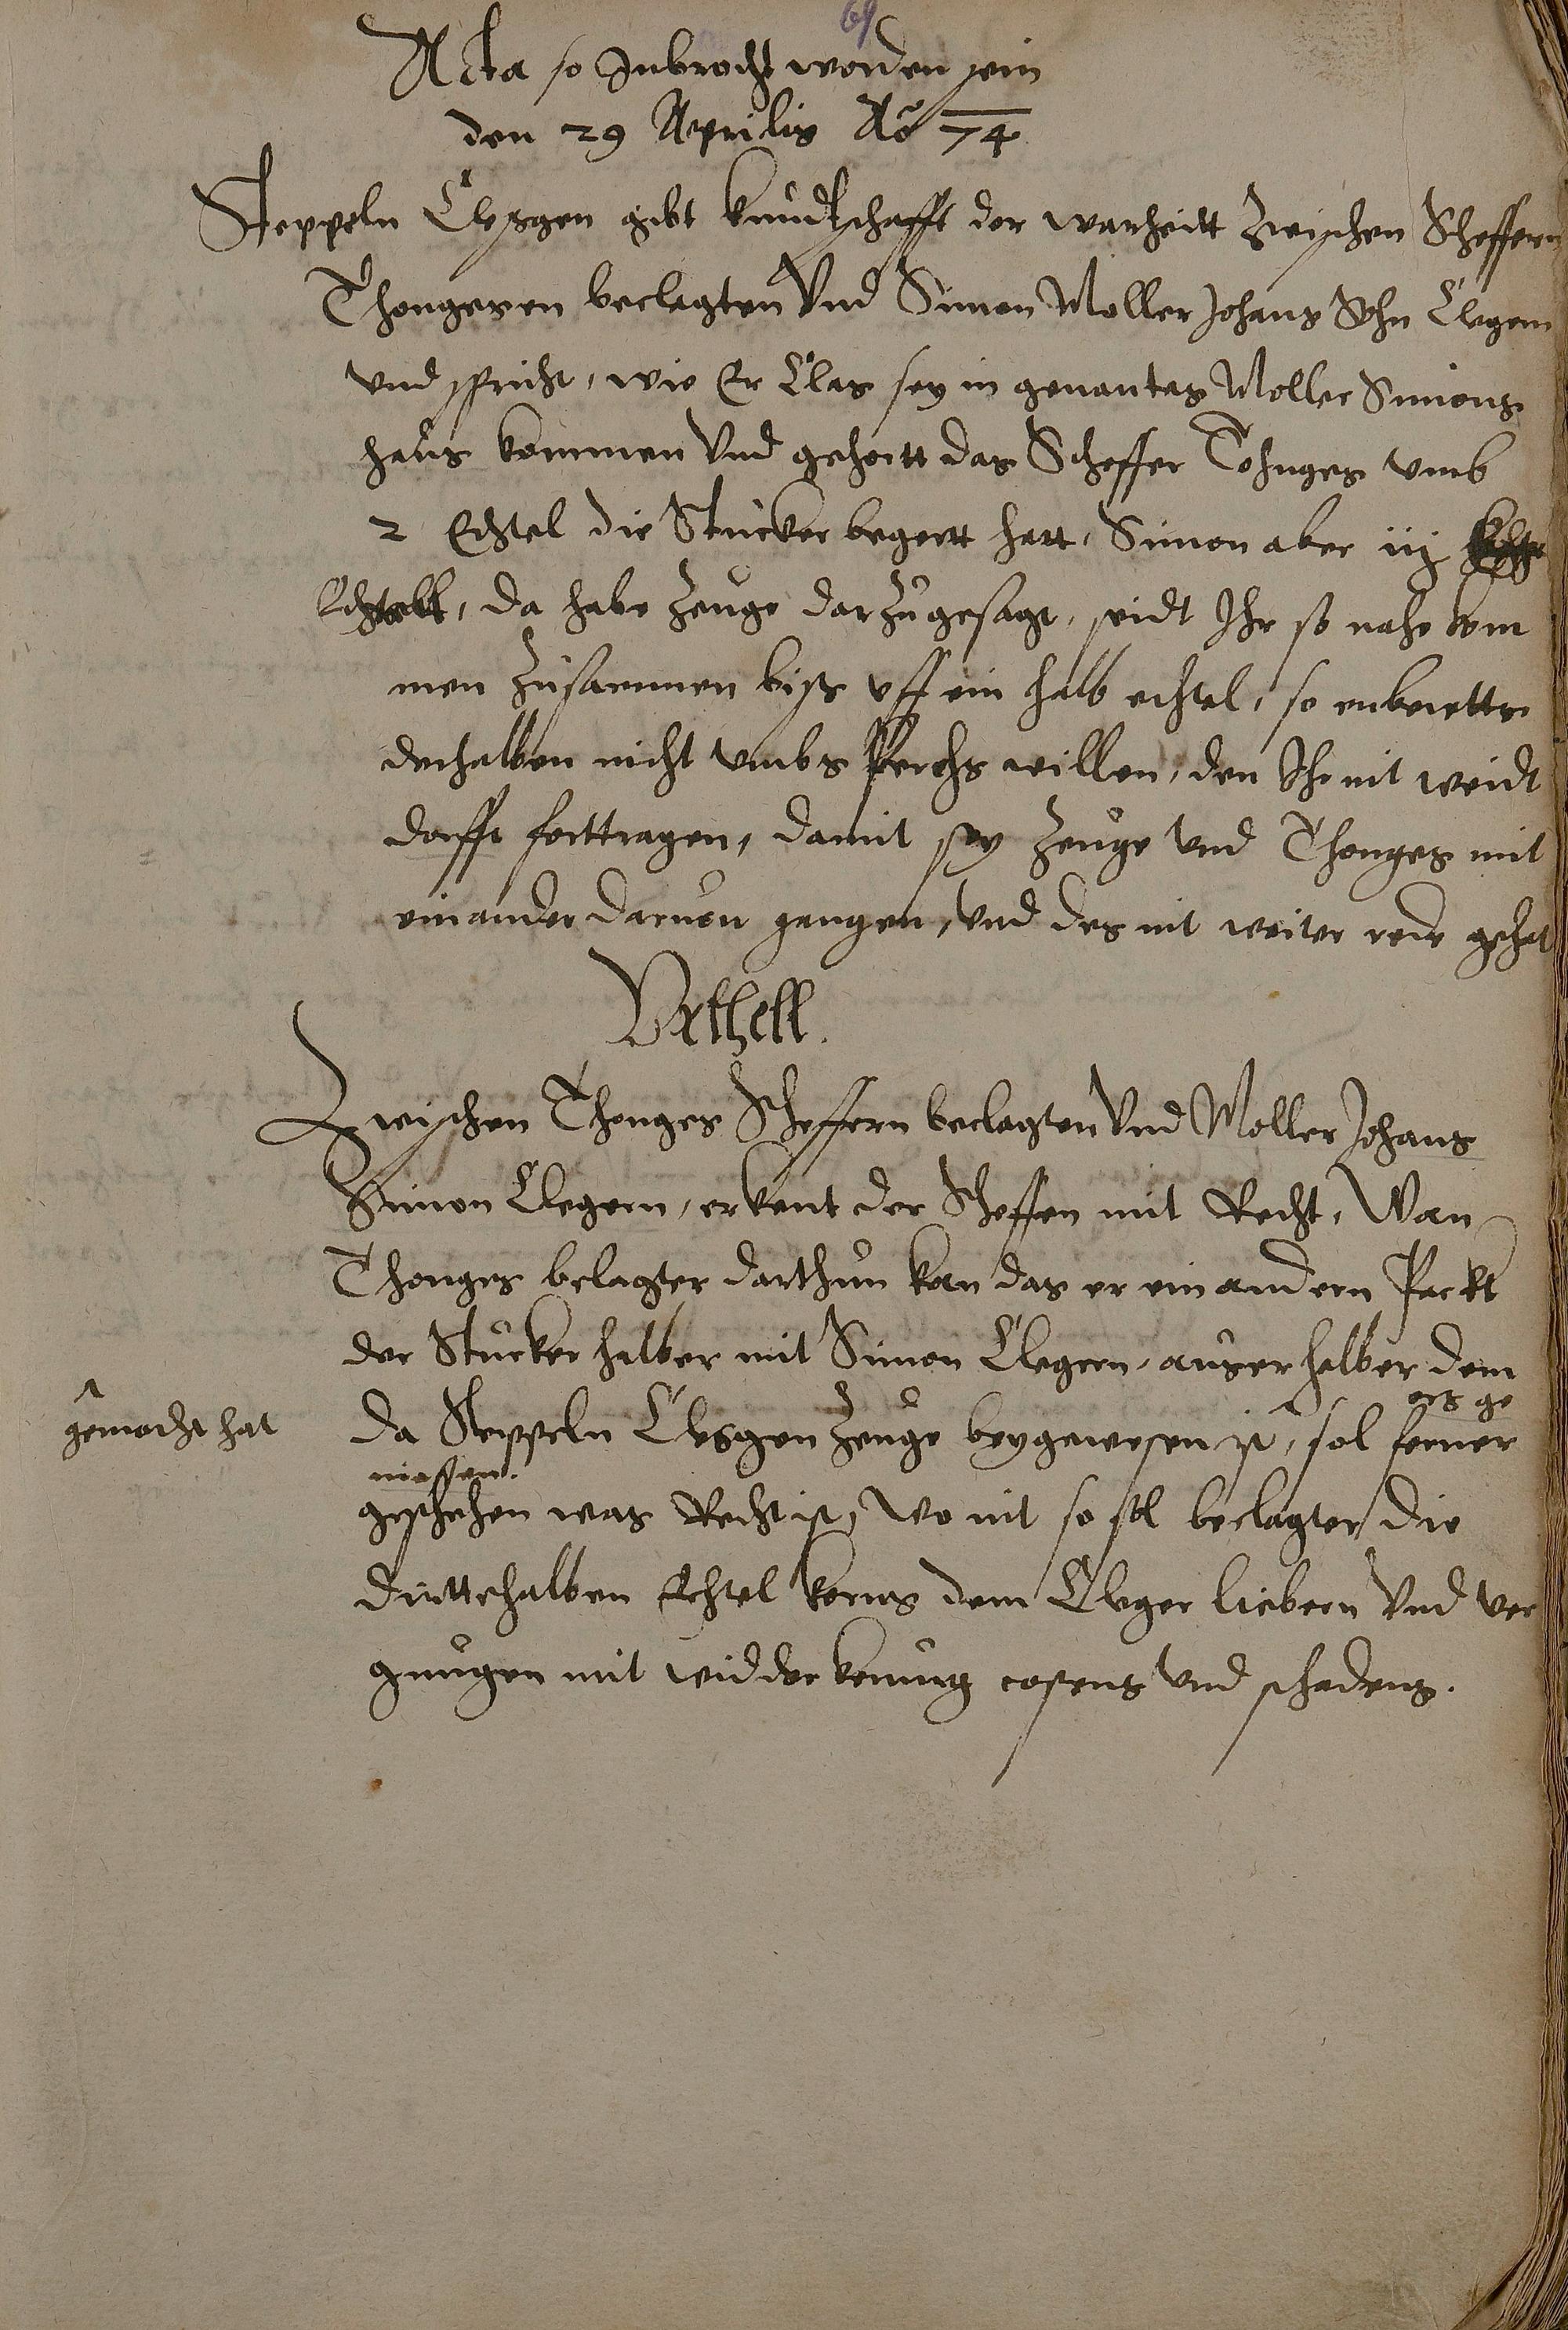 69
Acta so Inbrocht worden sein
den 29 Aprilis Aõ 74
Steppeln Clesgen gibt kundtschafft der warheitt zwischen Scheffern
Thongesen beclagten Vnd Simon Moller Johans Sohn Clegern
vnd spricht, wie Er Clas sey in genantes Moller Simons
haus kommen Vnd gehortt das Scheffer Tohnges vmb
2 Echtel die Stucker begertt hatt, Simon aber iij
Echtell, da habe Zeuge darzu gesagt, seidt Ihr so nahe kom
men zusammen biss vff ein halb echtel, so
derhalben nicht vmbs willen, den Ihr nit weidt
dorfft forttragen, damit sey Zeuge Vnd Thonges mit
einander daruon gangen, Vnd des nit weiter rede gehat
Vrthell.
Zwischen Thonges Scheffern beclagten Vnd Moller Johans
Simon Clegern, erkent der Scheffen mit Recht, Wan
Thonges belagter darthun kan das er ein andern Packt
der Stucker halber mit Simon Clegern, auserhalber dem
da Steppeln Clesgen Zeuge beygewesen ist, sol ferner
gemacht hat
er ge
massen.
geschehen was Recht ist, Wo nit so sol beclagter die
dritthalben Echtel korns dem Cleger liebern Vnd ver
gnugen mit widderkerung costens Vnd schadens.